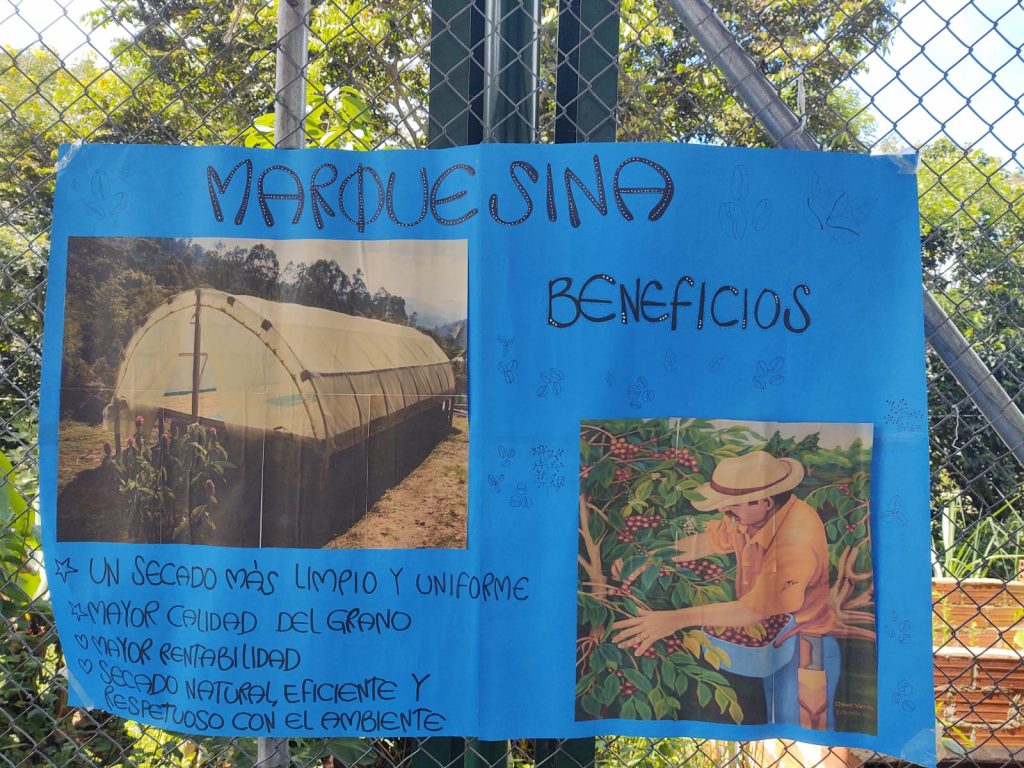 MARQUESINA
BENEFICIOS
UN SECADO MÁS LIMPIO Y UNIFORME
MAYOR CALIDAD DEL GRANO
MAYOR RENTABILIDAD
SECADO NATURAL, EFICIENTE Y
RESPETUOSO CON EL AMBIENTE